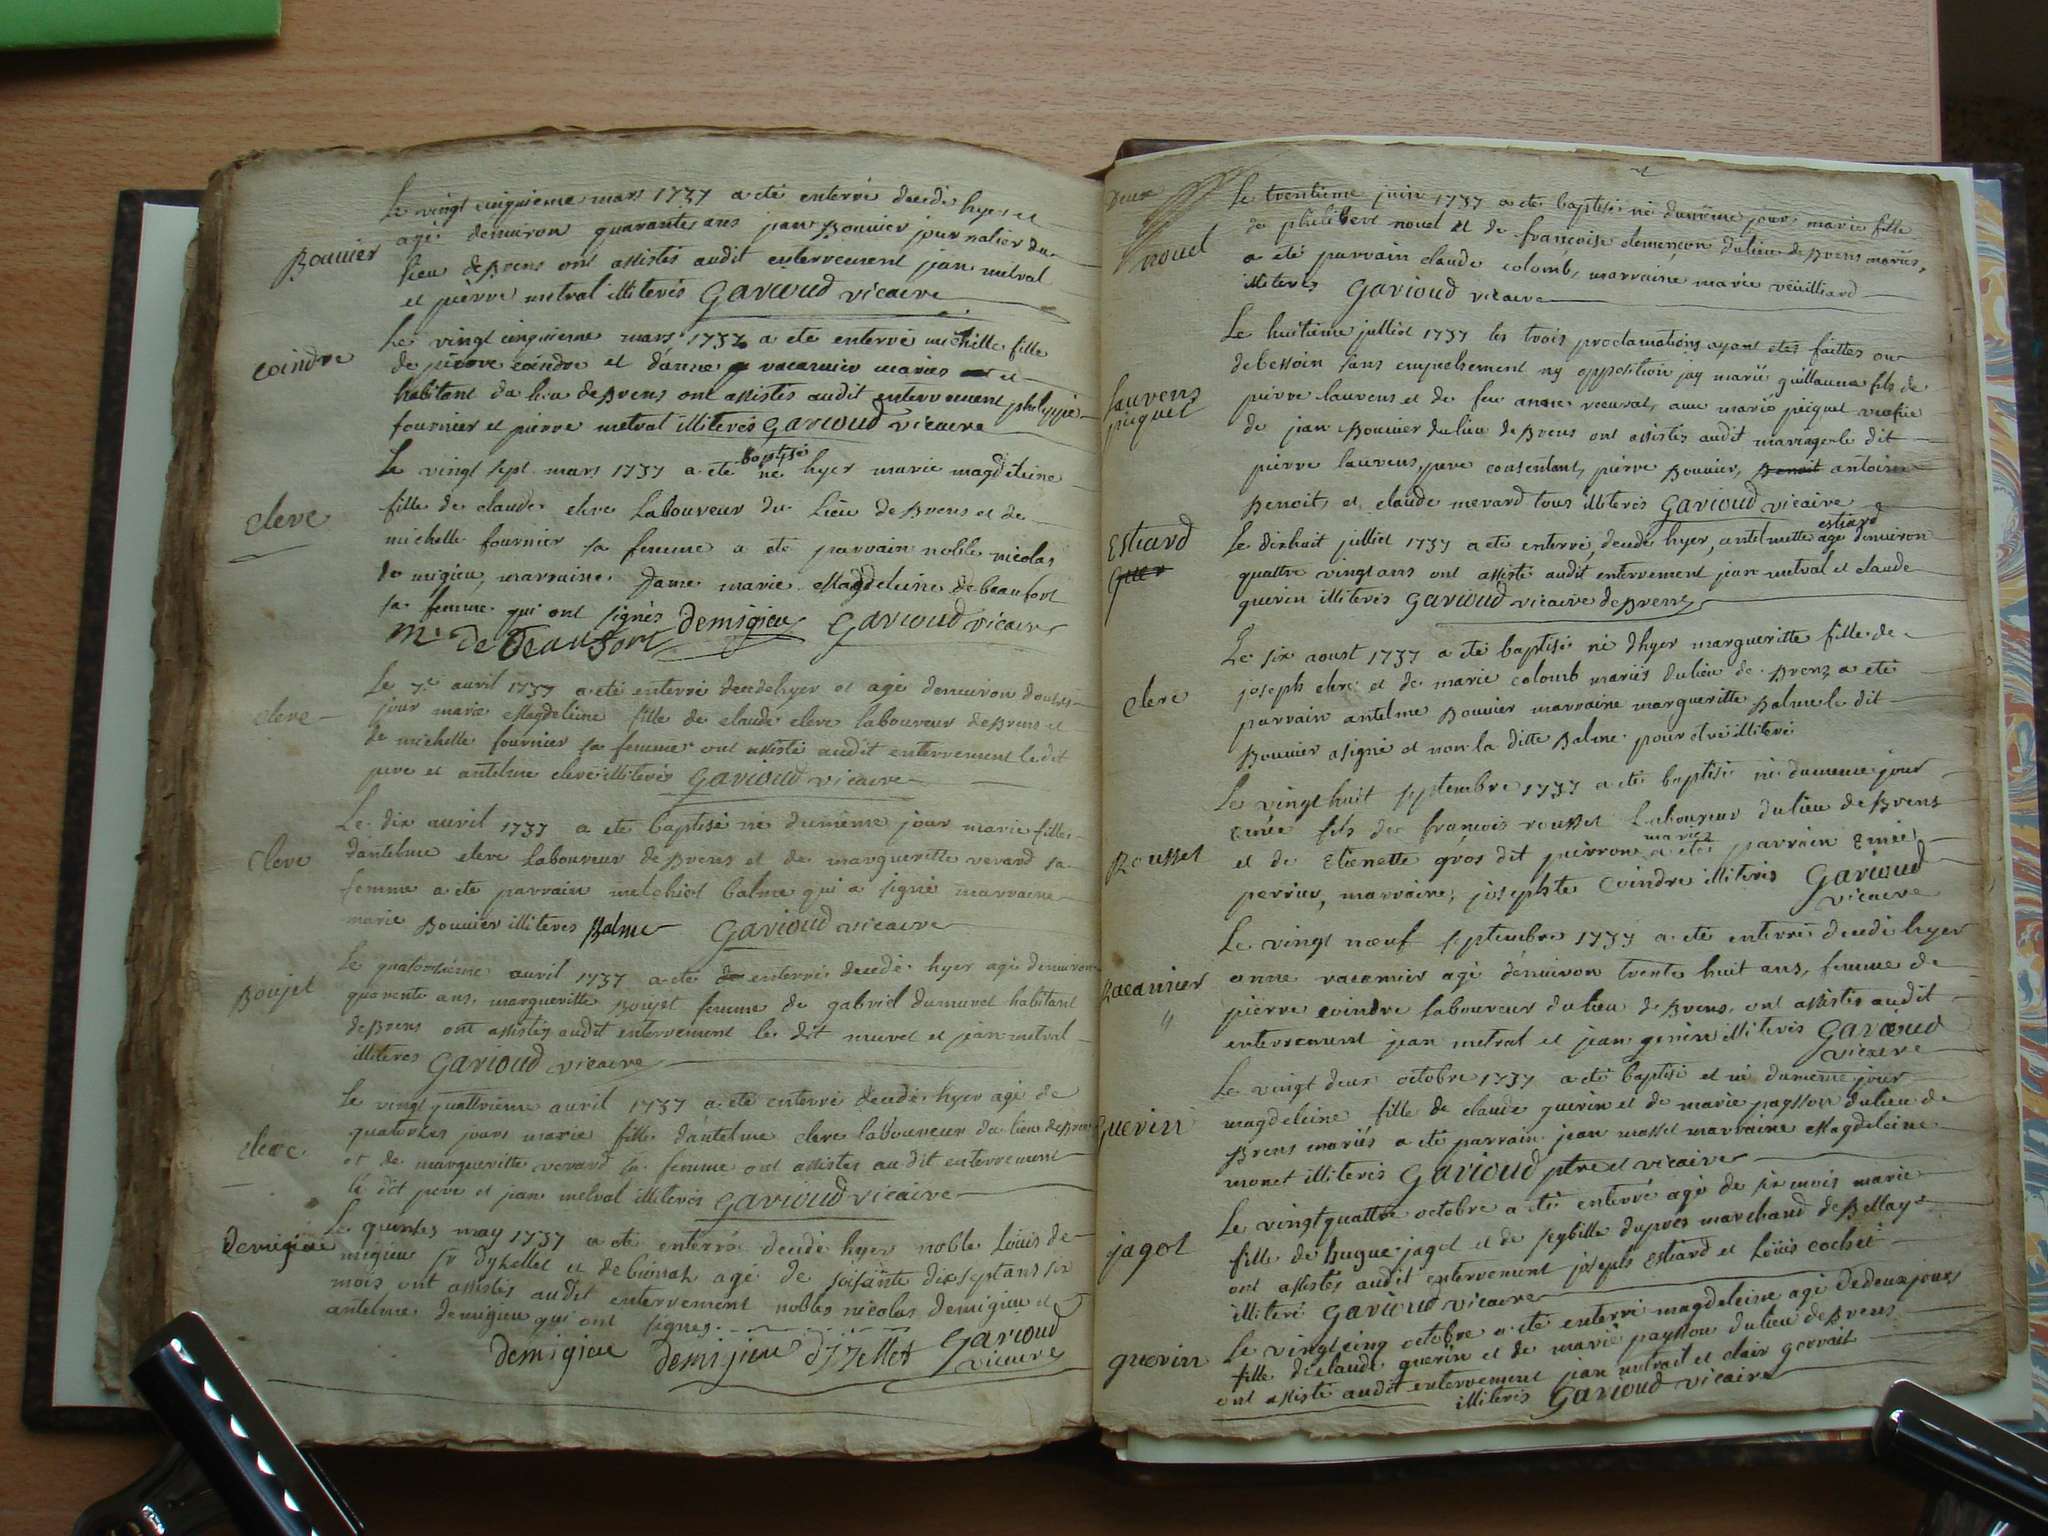 Bouvier
Le vingt cinquieme mars 1737 a eté enterré decedé hyer et
agé denviron quarantes ans jean Bouvier journalier du
lieu de Brens ont assistés audit enterrement jean metral
et pierre metral illiterés Garioud vicaire
coindre
Le vingt cinquieme mars 1737 a eté enterré michelle fille
de pierre coindre et d'anne vacamier mariés et
habitant du lieu de Brens ont assistés audit enterrement philippe
fournier et pierre metral illiterés Garioud vicaire
clerc
Le vingt sept mars 1737 a eté baptisé né hyer marie magdeleine
fille de claude clerc Laboureur du Lieu de Brens et de
michelle fournier sa femme a eté parrain noble nicolas
de migieu, marraine Dame marie Magdeleine de beaufort
sa femme qui ont signés Demigieu Garioud vicaire
M. de Beaufort
clerc
Le 7e avril 1737 a eté enterré decede hyer et agé denviron douzes
jour marie Magdeleine fille de claude clerc laboureur de Brens et
de michelle fournier sa femme ont assisté audit enterrement le dit
pere et antelme clerc illiterés Garioud vicaire
clerc
Le dix avril 1737 a eté baptisé né dumême jour marie fille
d'antelme clerc Laboureur de Brens et de margueritte verard sa
femme a eté parrain melchiot balme qui a signé marraine
marie Bouvier illiteres Balme Garioud vicaire
Boujet
Le quatorzième avril 1737 a eté enterré decedé hyer agé denviron
quarente ans, margueritte Boujet femme de gabriel dumuret habitant
de Brens ont assistés audit enterrement le dit muret et jean metral
illiteres Garioud vicaire
clerc
Le vingt quattrieme avril 1737 a eté enterré decedé hyer agé de
quatorzes jours marie fille d'antelme clerc laboureur du lieu de Brens
et de margueritte verard sa femme ont assistés au dit enterrement
le dit pere et jean metral illiterés Garioud vicaire
Demigieu
Le quinzes may 1737 a eté enterré decedé hyer noble Loüis de
migieu sr d'yzellet et de agé de soisante dix sept ans six
mois ont assistés audit enterrement nobles nicolas demigieu et
antelme demigieu qui ont signes.
Demigieu Demijieu d'Izellet Garioud
vicaire
nouet
Le trentieme juin 1737 a eté baptisé né dumême jour marie fille
de philibert nouet et de françoise clemençon du lieu de Brens mariés,
a eté parrain claude colomb, marraine marie veüilliard
illiterés Garioud vicaire
Laurens
picquet
Le huitieme julliet 1737 les trois proclamations ayant etés faittes ou
debessoin sans empechement ny opposition jay marié guillaume fils de
pierre laurens et de feu anne avec marie picquet veufve
de jean Bouvier du lieu de Brens ont assistés audit mariage le dit
pierre laurens, pere consentant, pierre Bouvier, Benoit antoine
Benoit, et claude merard tous illiterés Garioud vicaire
Estiard
Le dixhuit julliet 1737 a eté enterré, decedé hyer, antelmette estiard agé denviron
quattre vingt ans ont assisté audit enterrement jean metral et claude
guerin illiterés Garioud vicaire de Brens
clerc
Le six aoust 1737 a eté baptisé né dhyer margueritte fille de
joseph clerc et de marie colomb mariés du lieu de Brenz a eté
parrain antelme Bouvier marraine margueritte Balme le dit
Bouvier a signé et non la ditte Balme pour etre illiteré
Rousset
Le vingt huit septembre 1737 a eté baptisé né dumeme jour
Emée fils de francois rousset Laboureur du lieu de Brens
et de Etienette gros dit pierrone mariés a eté parrain Emée
perrier, marraine, josephte Coindre illiterés Garioud
vicaire
Vacamier
Le vingt nœuf septembre 1737 a eté enterré decedé hyer
anne vacamier agé d'environ trente huit ans, femme de
pierre coindre laboureur du lieu de Brens, ont assistés audit
enterrement jean metral et jean genin illiterés Garioud
vicaire
Guerin
Le vingt deux octobre 1737 a eté baptisé et né dumeme jour
magdeleine fille de claude guerin et de marie paysson du lieu de
Brens mariés a eté parrain jean masset marraine Magdeleine
monet illiterés Garioud ptre et vicaire
jagot
Le vingt quattre octobre a eté enterré agé de six mois marie
fille de hugue jagot et de seybille dupres marchand de Bellay
ont assistés audit enterrement joseph Estiard et Loüis cochet
illiteré Garioud vicaire
guerin
Le vingt cinq octobre a eté enterré magdeleine agé de deux jours
fille de claude guerin et de marie paysson du lieu de Brens
ont assisté audit enterrement jean metrait et clair gervait
illiterés Garioud vicaire